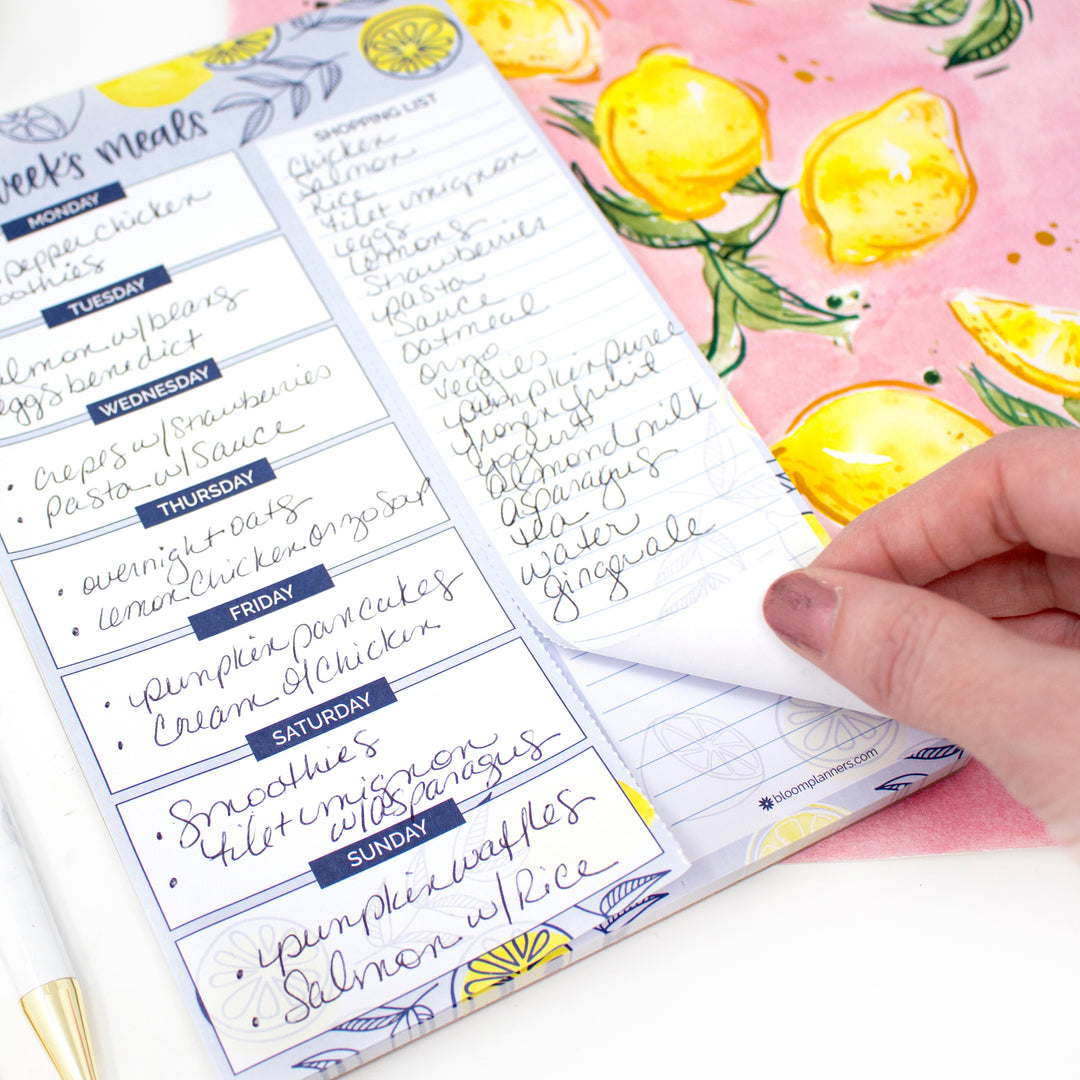 week's meals
MONDAY
pepper chicken
smoothies
TUESDAY
salmon w/beans
eggs benedict
WEDNESDAY
• crepes w/strawberries
• pasta w/sauce
THURSDAY
• overnight oats
• lemon chicken orzo soup
FRIDAY
• pumpkin pancakes
• cream of chicken
SATURDAY
• smoothies
• filet mignon
w/asparagus
SUNDAY
• pumpkin waffles
• Salmon w/Rice
SHOPPING LIST
chicken
salmon
rice
filet mignon
eggs
lemons
strawberries
pasta
sauce
oatmeal
orzo
veggies
pumpkin puree
frozen fruit
yogurt
almond milk
asparagus
tea
water
gingerale
bloomplanners.com